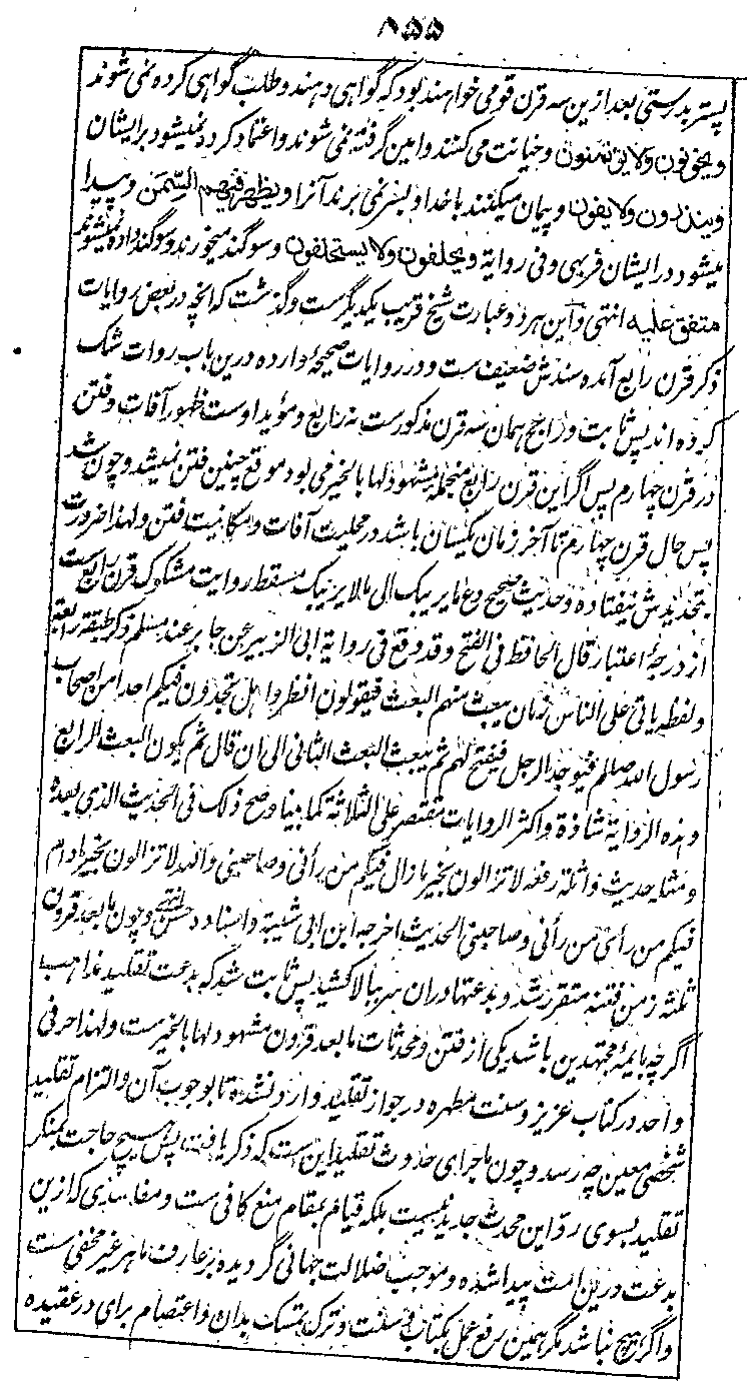 ۸۵۵
پستر بدرستی بعد ازین سه قرن قومی خواهند بود که گواهی دهند و طلب گواهی کرده نمی شوند
ویخونون ولا یؤتمنون و خیانت می کنند و امین گرفته نمی شوند و اعتماد کرده نمیشود برایشان
وینذرون ولا یفون و پیمان میکنند با خدا و بسر نمی برند آنرا و یظهر فیهم السمن و پیدا
میشود در ایشان فربهی وفی روایة ویحلفون ولا یستحلفون و سوگند میخورند و سوگند داده نمیشوند
متفق علیه انتهی و این هر دو عبارت شیخ قریب یکدیگرست و گذشت که آنچه در بعض روایات
ذکر قرن رابع آمده سندش ضعیف ست و در روایات صحیحهٔ وارده درین باب روات شک
کرده اند پس ثابت و راجح همان سه قرن مذکورست نه رابع و مؤید اوست ظهور آفات و فتن
در قرن چهارم پس اگر این قرن رابع منجملهٔ مشهود لها بالخیر می بود موقع چنین فتن نمیشد و چون شد
پس حال قرن چهارم تا آخر زمان یکسان باشد در محلیت آفات و مکانیت فتن و لهذا ضرورت
بتحدیدش نیفتاده و حدیث صحیح دع ما یریبک الی ما لا یریبک مسقط روایت مشکوک قرن رابع ست
از درجهٔ اعتبار قال الحافظ فی الفتح وقد وقع فی روایة ابی الزبیر عن جابر عند مسلم ذکر طبقة رابعة
ولفظه یاتی علی الناس زمان یبعث منهم البعث فیقولون انظروا هل تجدون فیکم احدا من اصحاب
رسول الله صللم فیوجد الرجل فیفتح لهم ثم یبعث البعث الثانی الی ان قال ثم یکون البعث الرابع
وهذه الروایة شاذة واکثر الروایات مقتصر علی الثلاثة کما بینا وضح ذلک فی الحدیث الذی بعده
ومثله حدیث واثلة رفعه لا تزالون بخیر ما دام فیکم من رأنی وصاحبنی والله لا تزالون بخیر ما دام
فیکم من رأی من رأنی وصاحبنی الحدیث اخرجه ابن ابی شیبة و اسناده حسن انتهی و چون ما بعد قرون
ثلثه زمن فتنه متقرر شد و بدعتها دران سر ببالا کشید پس ثابت شد که بدعت تقلید مذاهب
اگر چه بائمهٔ مجتهدین باشد یکی از فتن و محدثات ما بعد قرون مشهود لها بالخیر ست و لهذا حرفی
واحد در کتاب عزیز و سنت مطهره در جواز تقلید وارد نشده تا بوجوب آن و التزام تقلید
شخصی معین چه رسد و چون ماجرای حدوث تقلید این ست که ذکر یافت پس هیچ حاجت بمنکر
تقلید بسوی رد این محدث جدید نیست بلکه قیام بمقام منع کافی ست و مفاسدی که ازین
بدعت درین امت پیدا شده و موجب ضلالت جهانی گردیده بر عارف ماهر غیر مخفی ست
و اگر هیچ نباشد مگر همین رفع عمل بکتاب و سنت و ترک تمسک بدان و اعتصام برای در عقیده